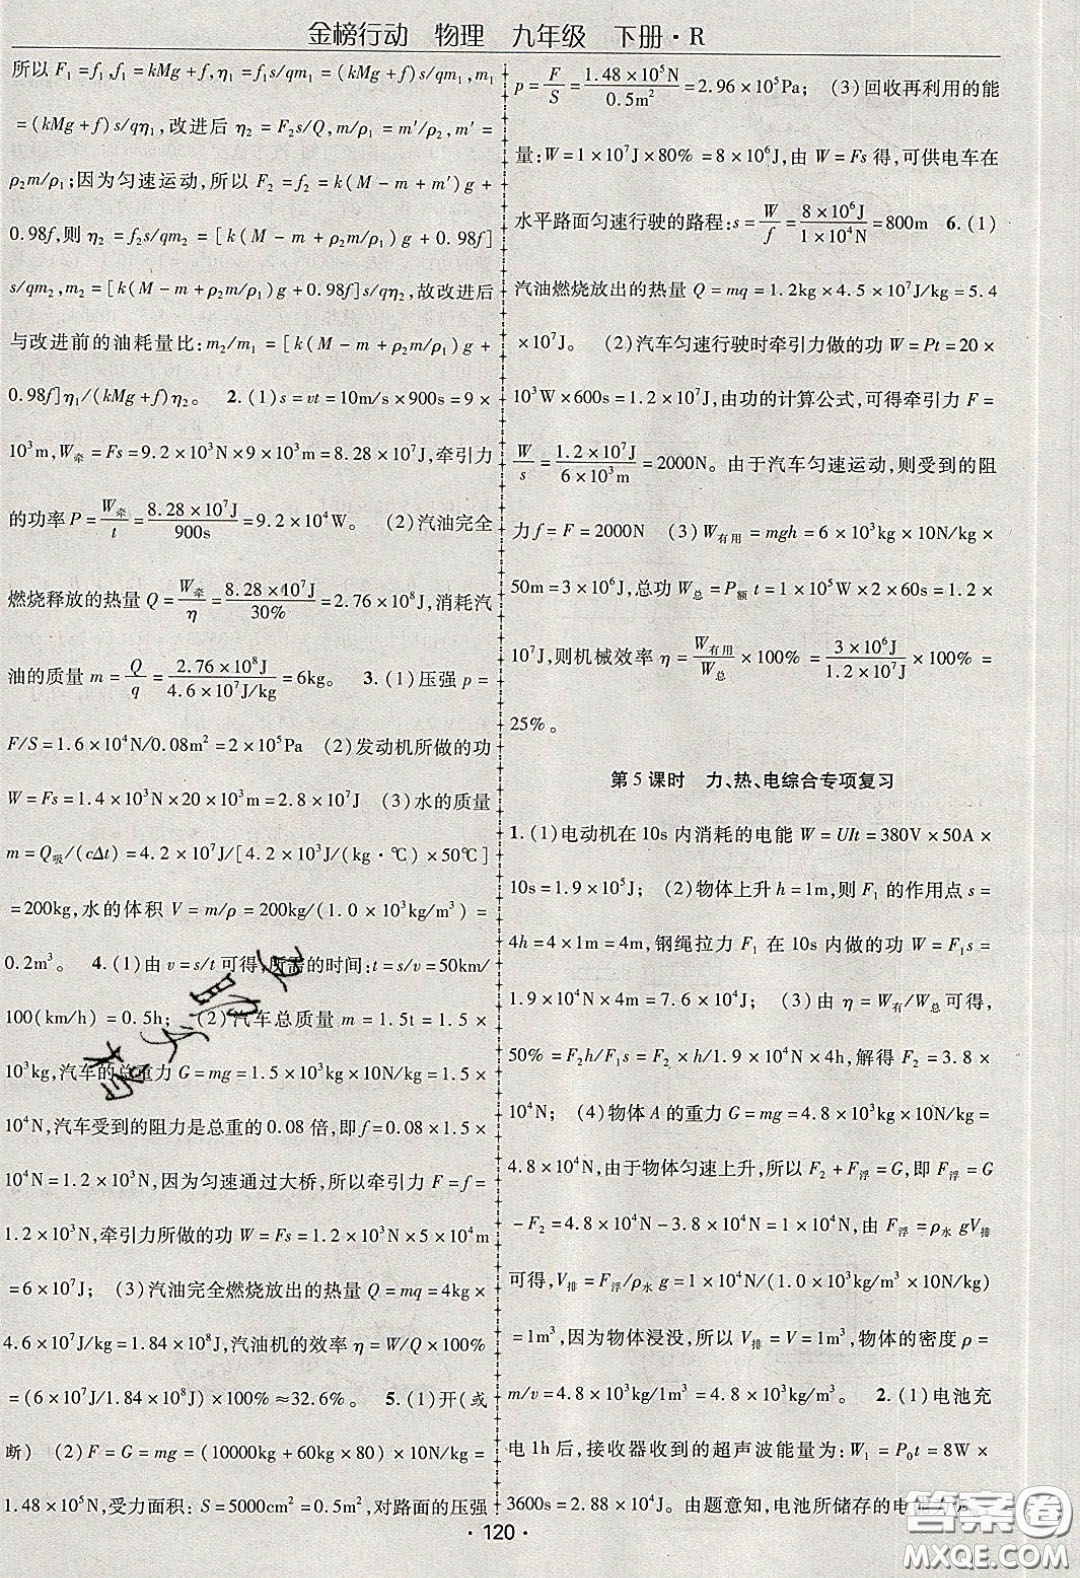 金榜行动 物理 九年级 下册·R
所以 F₁=f₁,f₁=kMg+f,η₁=f₁s/qm₁=(kMg+f)s/qm₁,m₁
=(kMg+f)s/qη₁,改进后 η₂=F₂s/Q,m/ρ₁=m′/ρ₂,m′=
ρ₂m/ρ₁;因为匀速运动,所以 F₂=f₂=k(M-m+m′)g+
0.98f,则 η₂=f₂s/qm₂=[k(M-m+ρ₂m/ρ₁)g+0.98f]
s/qm₂,m₂=[k(M-m+ρ₂m/ρ₁)g+0.98f]s/qη₂,故改进后
与改进前的油耗量比:m₂/m₁=[k(M-m+ρ₂m/ρ₁)g+
0.98f]η₁/(kMg+f)η₂。 2.(1)s=vt=10m/s×900s=9×
10³m,W牵=Fs=9.2×10³N×9×10³m=8.28×10⁷J,牵引力
的功率P=W牵/t=8.28×10⁷J/900s=9.2×10⁴W。 (2)汽油完全
燃烧释放的热量Q=W牵/η=8.28×10⁷J/30%=2.76×10⁸J,消耗汽
油的质量m=Q/q=2.76×10⁸J/4.6×10⁷J/kg=6kg。 3.(1)压强p=
F/S=1.6×10⁴N/0.08m²=2×10⁵Pa (2)发动机所做的功
W=Fs=1.4×10³N×20×10³m=2.8×10⁷J (3)水的质量
m=Q吸/(cΔt)=4.2×10⁷J/[4.2×10³J/(kg·℃)×50℃]
=200kg,水的体积 V=m/ρ=200kg/(1.0×10³kg/m³)=
0.2m³。 4.(1)由v=s/t可得,所需的时间:t=s/v=50km/
100(km/h)=0.5h; (2)汽车总质量 m=1.5t=1.5×
10³kg,汽车的总重力 G=mg=1.5×10³kg×10N/kg=1.5×
10⁴N,汽车受到的阻力是总重的0.08倍,即f=0.08×1.5×
10⁴N=1.2×10³N,因为匀速通过大桥,所以牵引力F=f=
1.2×10³N,牵引力所做的功W=Fs=1.2×10³N×5×10⁴m
=6×10⁷J; (3)汽油完全燃烧放出的热量Q=mq=4kg×
4.6×10⁷J/kg=1.84×10⁸J,汽油机的效率η=W/Q×100%
=(6×10⁷J/1.84×10⁸J)×100%≈32.6%。 5.(1)开(或
断) (2)F=G=mg=(10000kg+60kg×80)×10N/kg=
1.48×10⁵N,受力面积:S=5000cm²=0.5m²,对路面的压强
p=F/S=1.48×10⁵N/0.5m²=2.96×10⁵Pa; (3)回收再利用的能
量:W=1×10⁷J×80%=8×10⁶J,由W=Fs得,可供电车在
水平路面匀速行驶的路程:s=W/f=8×10⁶J/1×10⁴N=800m 6.(1)
汽油燃烧放出的热量Q=mq=1.2kg×4.5×10⁷J/kg=5.4
×10⁷J。 (2)汽车匀速行驶时牵引力做的功W=Pt=20×
10³W×600s=1.2×10⁷J,由功的计算公式,可得牵引力F=
W/s=1.2×10⁷J/6×10³m=2000N。由于汽车匀速运动,则受到的阻
力f=F=2000N (3)W有用=mgh=6×10³kg×10N/kg×
50m=3×10⁶J,总功W总=P额t=1×10⁵W×2×60s=1.2×
10⁷J,则机械效率η=W有用/W总×100%=3×10⁶J/1.2×10⁷J×100%=
25%。
第5课时 力、热、电综合专项复习
1.(1)电动机在10s内消耗的电能W=UIt=380V×50A×
10s=1.9×10⁵J; (2)物体上升h=1m,则F₁的作用点s=
4h=4×1m=4m,钢绳拉力F₁在10s内做的功W=F₁s=
1.9×10⁴N×4m=7.6×10⁴J; (3)由η=W有/W总可得,
50%=F₂h/F₁s=F₂×h/1.9×10⁴N×4h,解得F₂=3.8×
10⁴N; (4)物体A的重力G=mg=4.8×10³kg×10N/kg=
4.8×10⁴N,由于物体匀速上升,所以F₂+F浮=G,即F浮=G
-F₂=4.8×10⁴N-3.8×10⁴N=1×10⁴N,由F浮=ρ水gV排
可得,V排=F浮/ρ水g=1×10⁴N/(1.0×10³kg/m³×10N/kg)
=1m³,因为物体浸没,所以V排=V=1m³,物体的密度ρ=
m/v=4.8×10³kg/1m³=4.8×10³kg/m³。 2.(1)电池充
电1h后,接收器收到的超声波能量为:W₁=P₀t=8W×
3600s=2.88×10⁴J。由题意知,电池所储存的电
·120·
答案圈
MXQE.COM